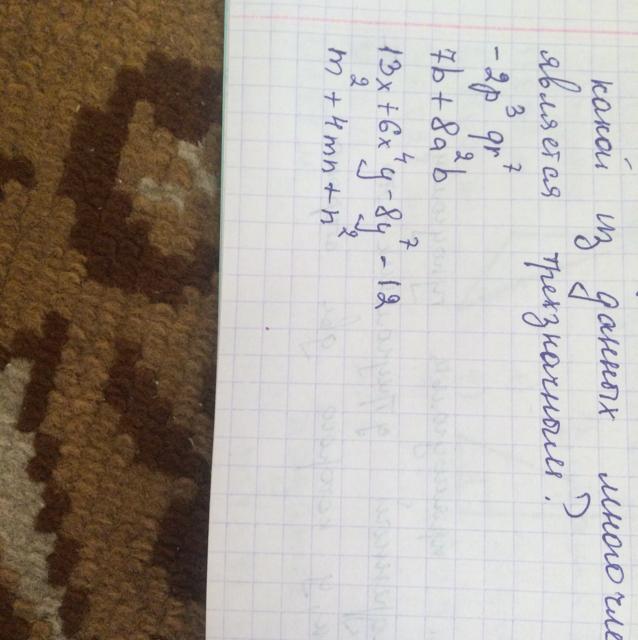 какой из данных многочле
является трехзначном?
-2p³ qr⁷
7b + 8a²b
13x + 6x⁴y - 8y⁷ - 12
m² + 4mn + n²